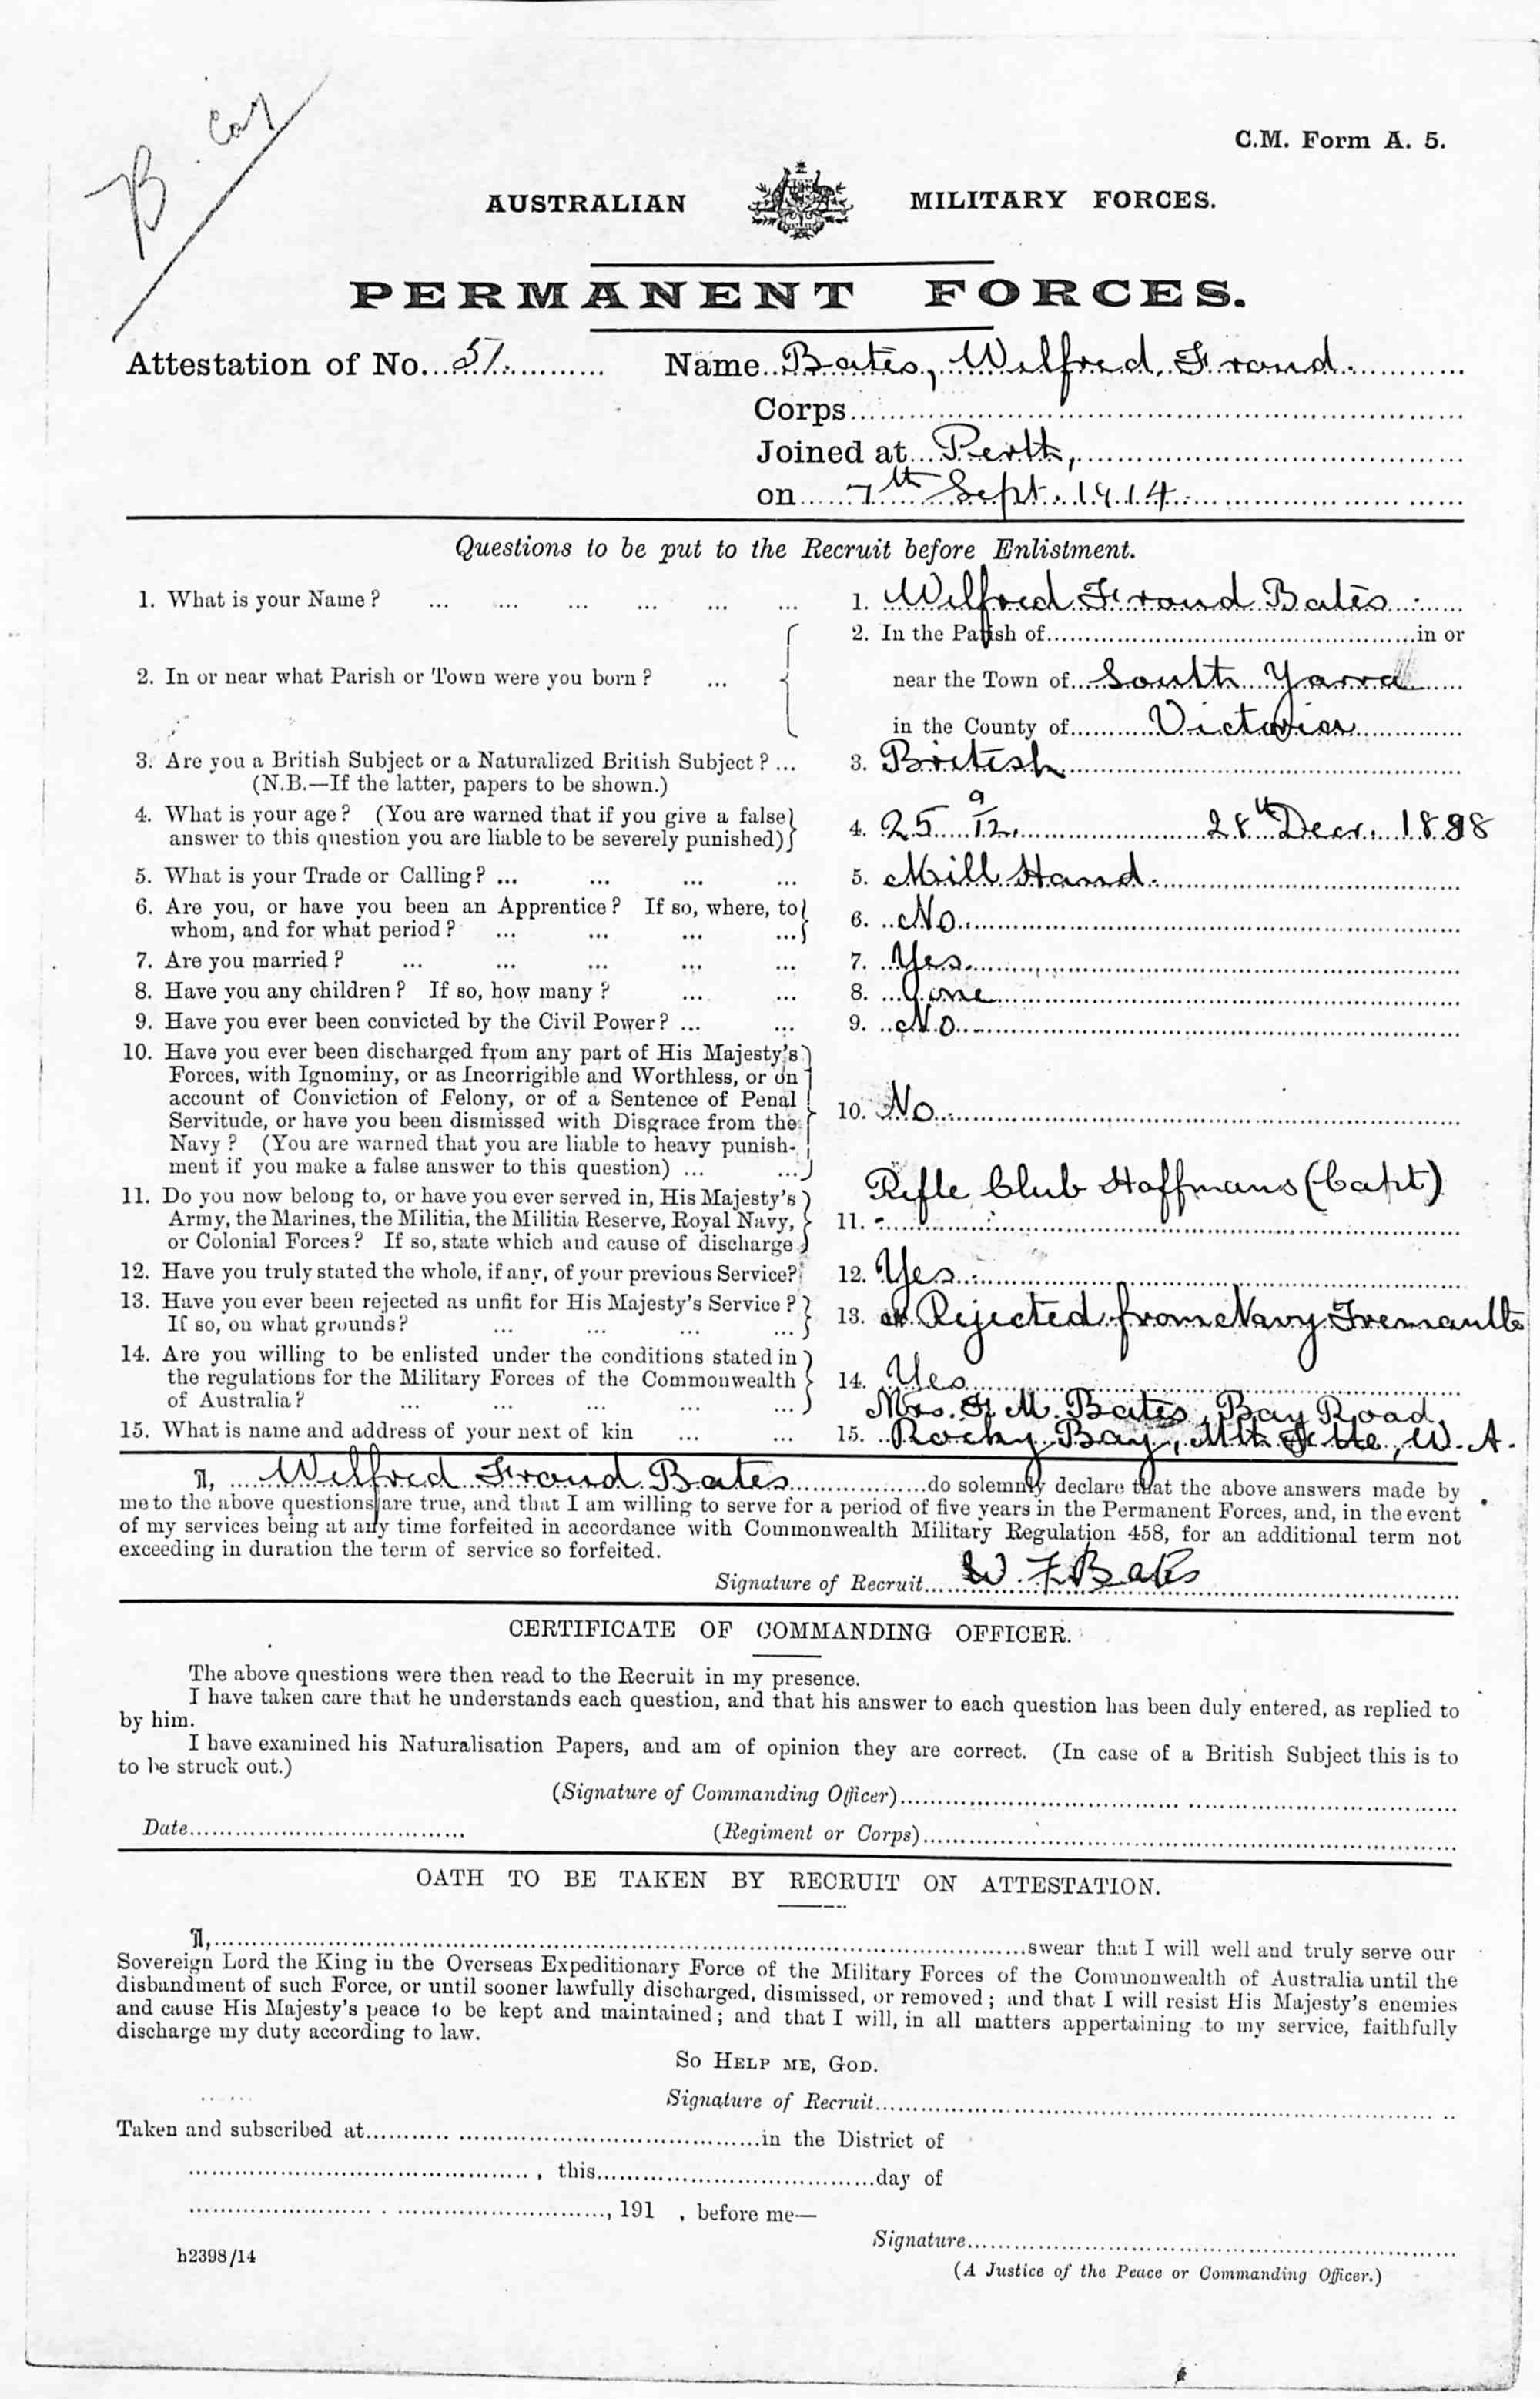 B. Coy
C.M. Form A. 5.
AUSTRALIAN MILITARY FORCES.
PERMANENT FORCES.
Attestation of No. 51. Name Bates, Wilfred Froud.
Corps
Joined at Perth,
on 7th Sept. 1914.
Questions to be put to the Recruit before Enlistment.
1. What is your Name? ... ... ... ... ... ... 1. Wilfred Froud Bates
2. In the Parish of in or
2. In or near what Parish or Town were you born? ... near the Town of South Yarra
in the County of Victoria
3. Are you a British Subject or a Naturalized British Subject? ... 3. British
(N.B.—If the latter, papers to be shown.)
4. What is your age? (You are warned that if you give a false
answer to this question you are liable to be severely punished) 4. 25 9/12. 28th Decr. 1888
5. What is your Trade or Calling? ... ... ... ... 5. Mill Hand.
6. Are you, or have you been an Apprentice? If so, where, to
whom, and for what period? ... ... ... ... 6. No.
7. Are you married? ... ... ... ... ... 7. Yes.
8. Have you any children? If so, how many? ... ... 8. one
9. Have you ever been convicted by the Civil Power? ... ... 9. No.
10. Have you ever been discharged from any part of His Majesty's
Forces, with Ignominy, or as Incorrigible and Worthless, or on
account of Conviction of Felony, or of a Sentence of Penal
Servitude, or have you been dismissed with Disgrace from the 10. No.
Navy? (You are warned that you are liable to heavy punish-
ment if you make a false answer to this question) ... ...
Rifle Club Hoffmans (Capt)
11. Do you now belong to, or have you ever served in, His Majesty's
Army, the Marines, the Militia, the Militia Reserve, Royal Navy, 11.
or Colonial Forces? If so, state which and cause of discharge
12. Have you truly stated the whole, if any, of your previous Service? 12. Yes.
13. Have you ever been rejected as unfit for His Majesty's Service? 13. Rejected from Navy Fremantle
If so, on what grounds? ... ... ... ...
14. Are you willing to be enlisted under the conditions stated in
the regulations for the Military Forces of the Commonwealth 14. Yes
of Australia? ... ... ... ... ...
Mrs. M. Bates, Bay Road,
15. What is name and address of your next of kin ... ... 15. Rocky Bay, Nth Ftle, W.A.
I, Wilfred Froud Bates do solemnly declare that the above answers made by
me to the above questions are true, and that I am willing to serve for a period of five years in the Permanent Forces, and, in the event
of my services being at any time forfeited in accordance with Commonwealth Military Regulation 458, for an additional term not
exceeding in duration the term of service so forfeited.
Signature of Recruit W. F. Bates
CERTIFICATE OF COMMANDING OFFICER.
The above questions were then read to the Recruit in my presence.
I have taken care that he understands each question, and that his answer to each question has been duly entered, as replied to
by him.
I have examined his Naturalisation Papers, and am of opinion they are correct. (In case of a British Subject this is to
to be struck out.)
(Signature of Commanding Officer)
Date (Regiment or Corps)
OATH TO BE TAKEN BY RECRUIT ON ATTESTATION.
I, swear that I will well and truly serve our
Sovereign Lord the King in the Overseas Expeditionary Force of the Military Forces of the Commonwealth of Australia until the
disbandment of such Force, or until sooner lawfully discharged, dismissed, or removed; and that I will resist His Majesty's enemies
and cause His Majesty's peace to be kept and maintained; and that I will, in all matters appertaining to my service, faithfully
discharge my duty according to law.
SO HELP ME, GOD.
Signature of Recruit
Taken and subscribed at in the District of
, this day of
, 191 , before me—
Signature
h2398/14
(A Justice of the Peace or Commanding Officer.)